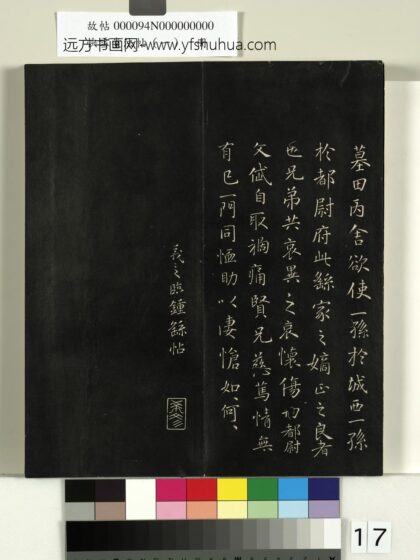 故帖 000094N000000000
远方书画网-www.yfshuhua.com
墓田丙舍欲使一孫於城西一孫
於都尉府此繇家之嫡正之良者
也兄弟共哀異之哀懷傷切都尉
文岱自取禍痛賢兄慈篤情無
有已一門同恤助以凄愴如、何、
羲之臨鍾繇帖
17